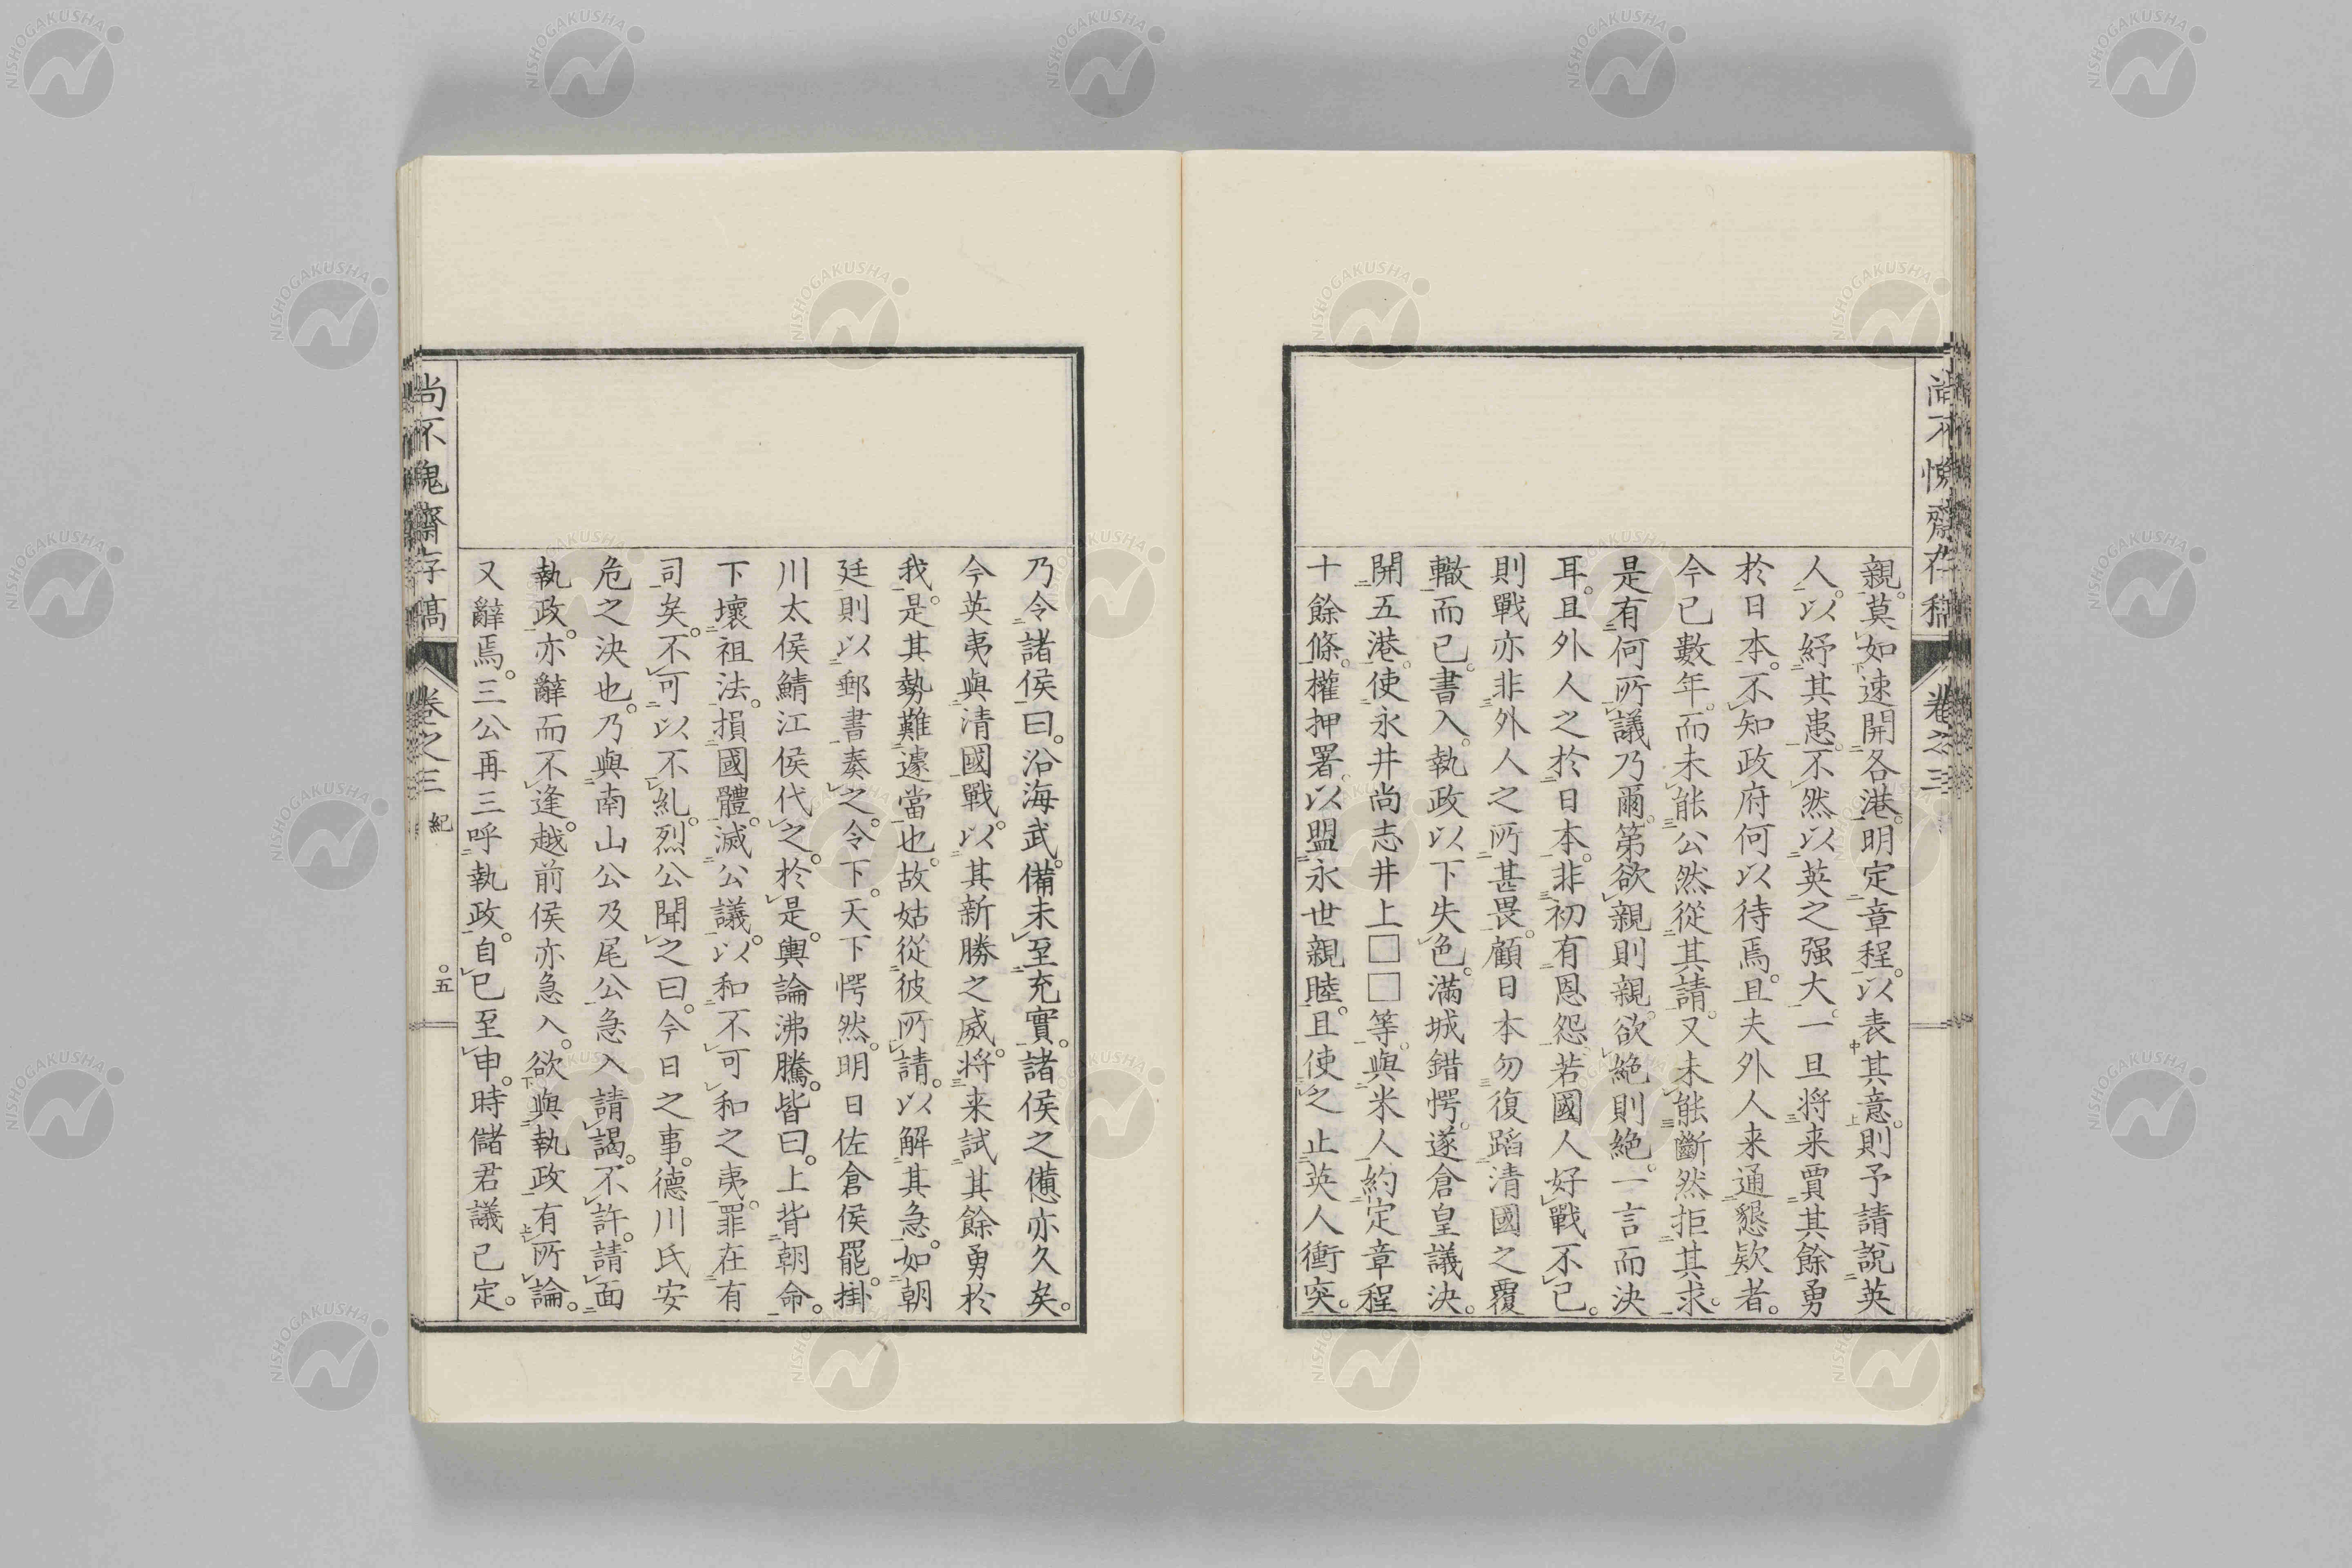 尚不愧齋存稿 卷之三
親。莫如速開各港。明定章程。以表其意。則予請說英
人。以紓其患。不然以英之强大。一旦将来賈其餘勇
於日本。不知政府何以待焉。且夫外人来通懇欵者。
今已數年。而未能公然從其請。又未能斷然拒其求。
是有何所議乃爾。第欲親則親。欲絶則絶。一言而決
耳。且外人之於日本。非初有恩怨。若國人好戰不已。
則戰亦非外人之所甚畏。顧日本勿復蹈清國之覆
轍而已。書入。執政以下失色。滿城錯愕。遂倉皇議決。
開五港。使永井尚志井上□□等。與米人約定章程
十餘條。權押署。以盟永世親睦。且使之止英人衝突。
乃令諸侯曰。沿海武備未至充實。諸侯之憊亦久矣。
今英夷與清國戰。以其新勝之威。将来試其餘勇於
我。是其勢難遽當也。故姑從彼所請。以解其急。如朝
廷則以郵書奏之。令下。天下愕然。明日佐倉侯罷。掛
川太侯鯖江侯代之。於是輿論沸騰。皆曰。上背朝命。
下壞祖法。損國體。滅公議。以和不可和之夷。罪在有
司矣。不可以不糺。烈公聞之曰。今日之事。德川氏安
危之決也。乃與南山公及尾公急入請謁。不許。請面
執政。亦辭而不逢。越前侯亦急入。欲與執政有所論。
又辭焉。三公再三呼執政。自已至申。時儲君議已定。
尚不愧齋存稿 卷之三 紀 五
NISHOGAKUSHA